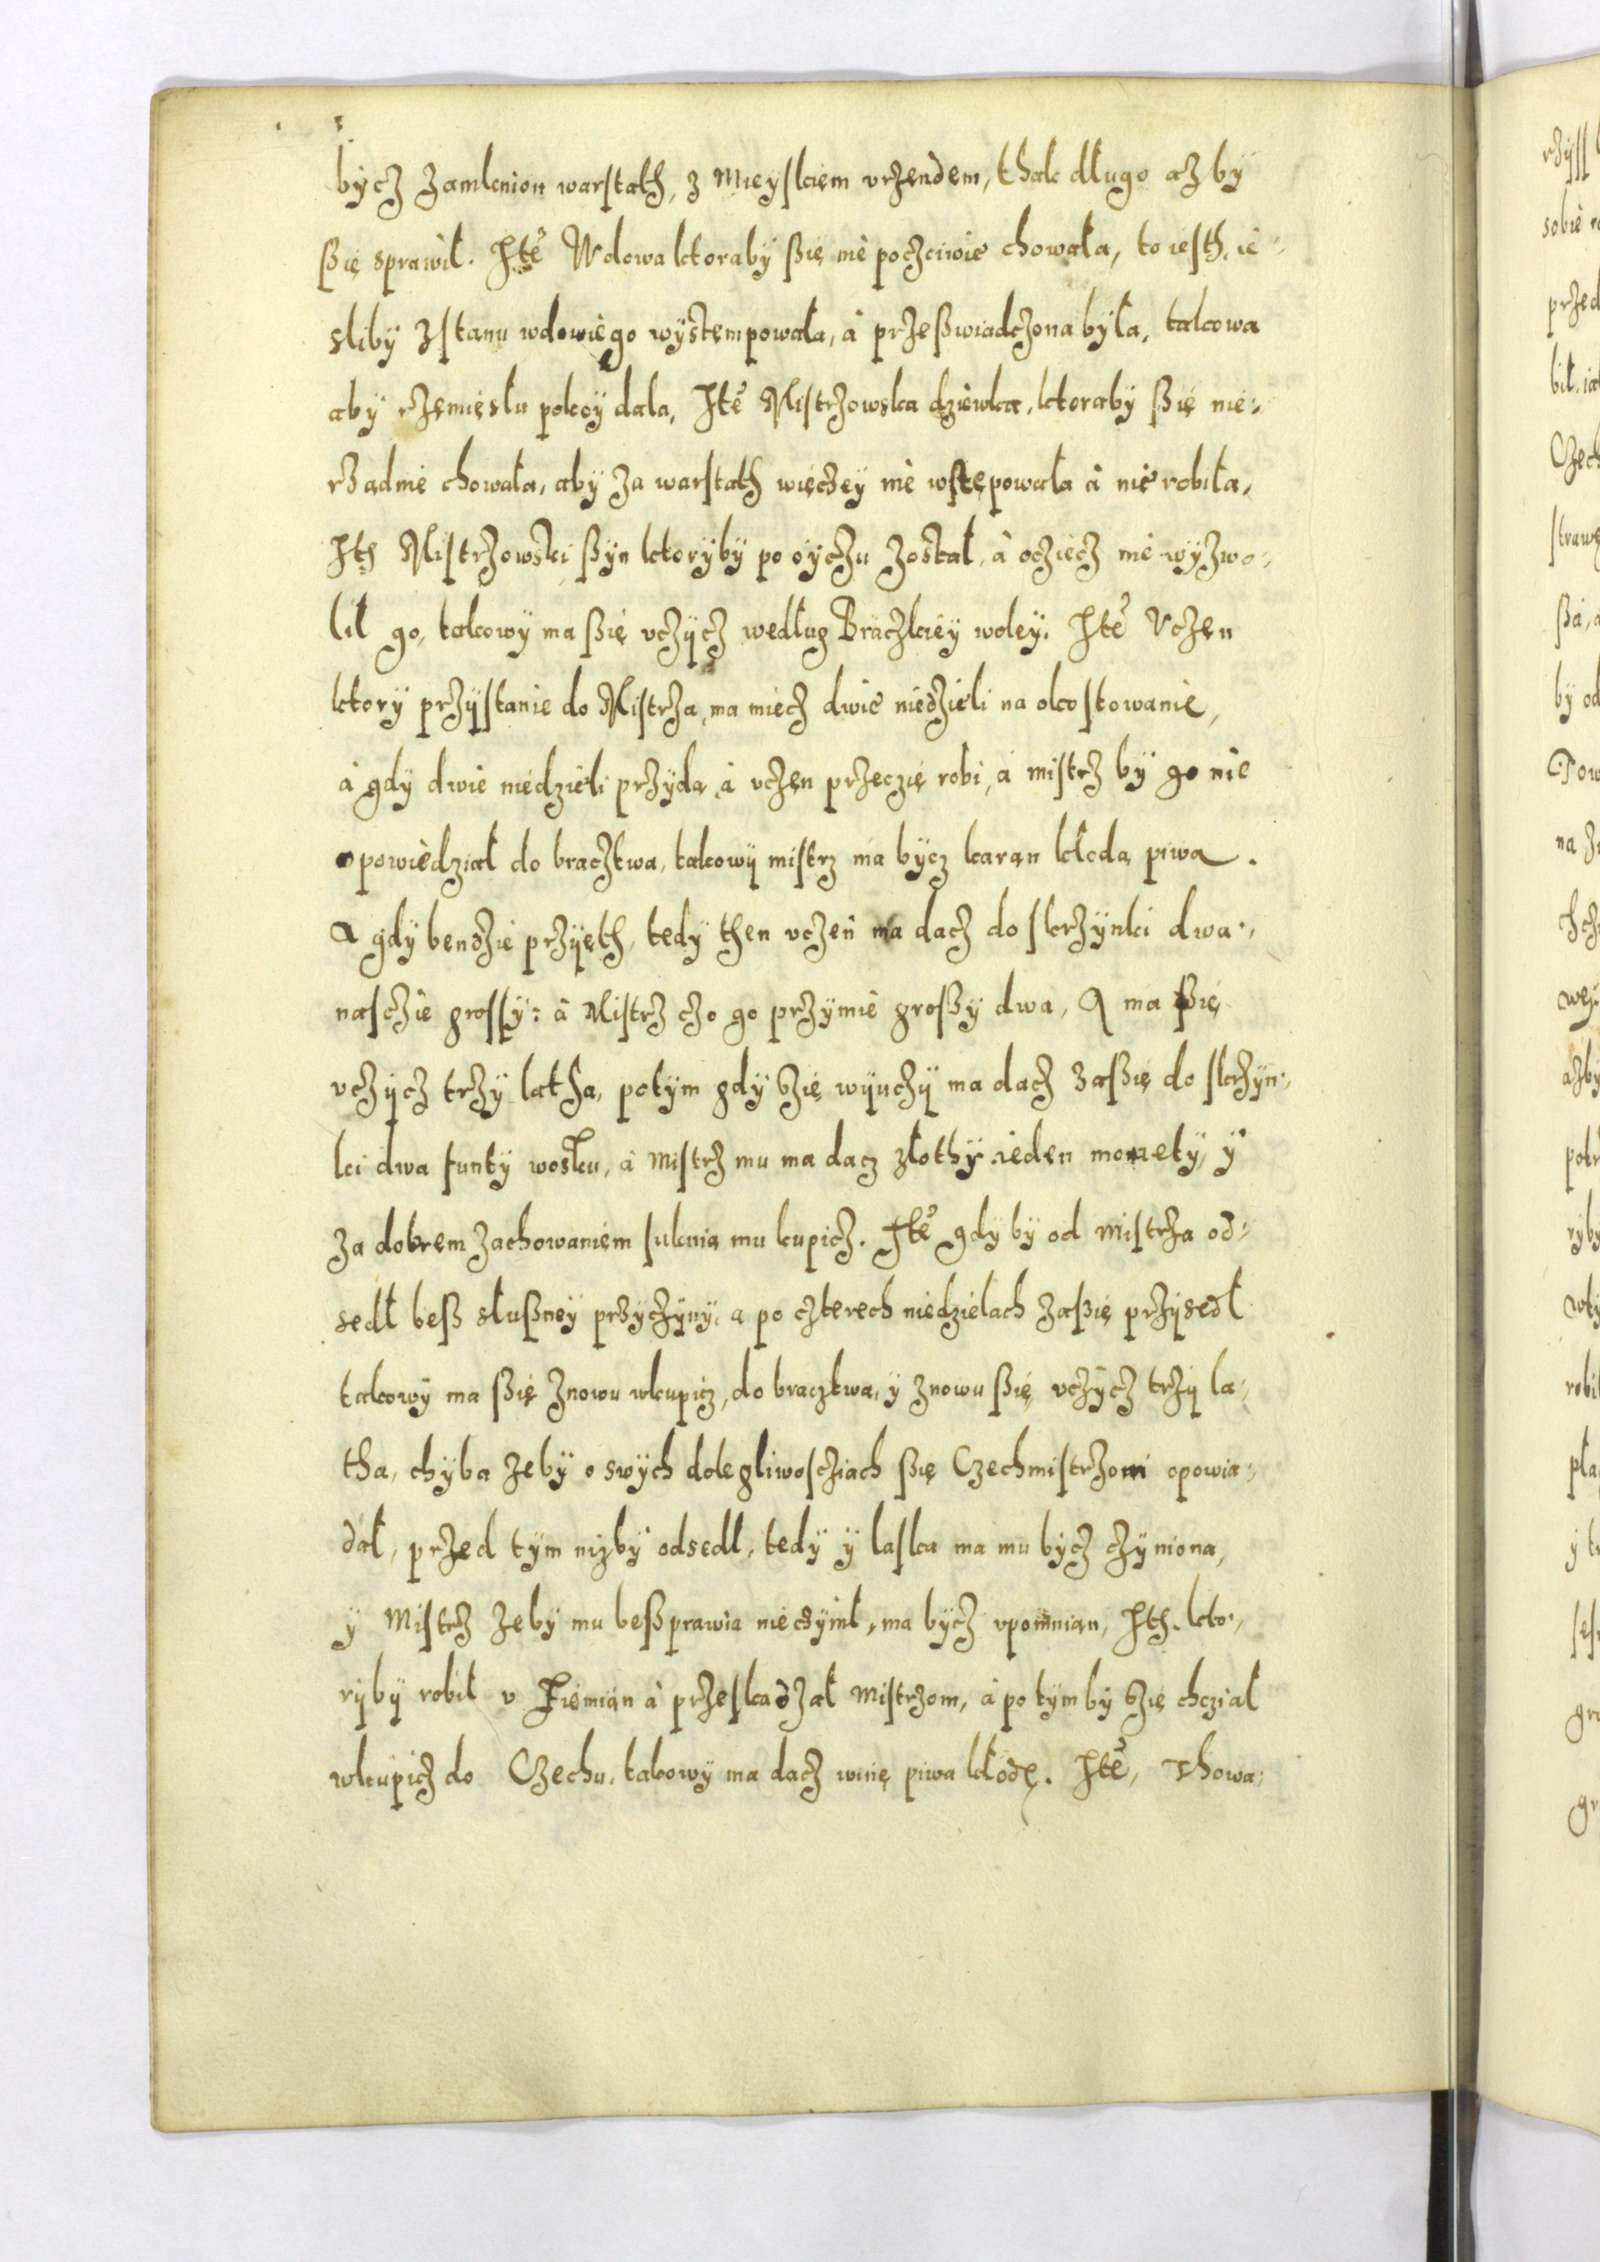 bycz zamknion warstath, z Mieyskiem vrzendem, thak długo azby
ßię sprawił. Ité Wdowa ktoraby ßię nie poczciwie chowała, to iesth, ie-
sliby z stanu wdowiego wystempowała, á przeßwiadczona była, takowa
aby rzemięsłu pokoy dała, Ité Mistrzowska dziewka, ktoraby ßię nie-
rządnie chowała, aby za warstath więczey nie wstępowała á nie robiła,
Ith Mistrzowski ßyn ktoryby po oyczu został, á ocziecz nie wyzwo-
lił go, takowy ma ßię vczycz według Braczkiey woley. Ité Vczen
ktory przystanie do Mistrza, ma miecz dwie niedzieli na okostowanie,
á gdy dwie niedzieli przyda, á vczen przeczię robi, á mistrz by go nie
opowiedział do bracztwa, takowy mistrz ma bycz karan kłoda piwa.
A gdy bendzie przyięth, tedy then vczen ma dacz do skrzynki dwa-
nasczie grossy: á Mistrz czo go przymie großy dwa, A ma ßię
vczycz trzy latha, potym gdy szię wyuczy ma dacz zaßię do skrzyn-
ki dwa funty wosku, á Mistrz mu ma dacz złothy ieden monety, y
za dobrem zachowaniem suknia mu kupicz. Ité gdy by od Mistrza od-
sedł beß słußney przyczyny, a po czterech niedzielach zaßię przysedł
takowy ma ßię znowu wkupicz, do bracztwa, y znowu ßię vczycz trzy la-
tha, chyba zeby o swych dolegliwosciach ßię Czechmistrzom opowia-
dał, przed tym nizby odsedł, tedy y laska ma mu bycz czyniona,
y Mistrz zeby mu beßprawia nie czynił, ma bycz vpomnian, Ith. kto-
ryby robił v Ziemian á przeskadzał Mistrzom, á po tym by szię chcział
wkupicz do Czechu, takowy ma dacz winię piwa kłodę. Ité, Thowa-